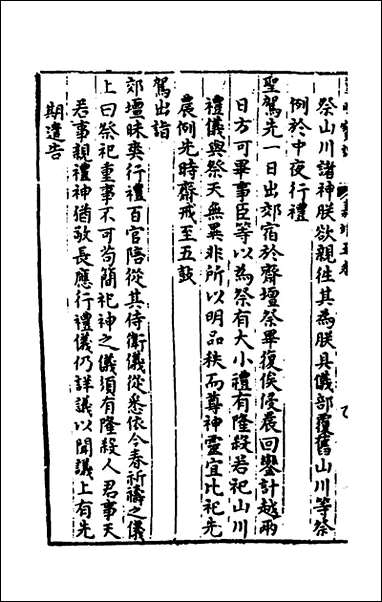 祭山川諸神朕欲親徃其為朕具儀部覆舊山川等祭
例於中夜行禮
聖駕先一日出郊宿於齋壇祭畢復俟侵晨回鑾計越兩
日方可畢事臣等以為祭有大小禮有隆殺若祀山川
禮儀與祭天無異非所以明品秩而尊神靈宜比祀先
農例先時齋戒至五鼓
駕出詣
郊壇昧爽行禮百官陪從其侍衛儀從悉依今春祈禱之儀
上曰祭祀重事不可苟簡祀神之儀須有隆殺人君事天
若事親禮神猶敬長應行禮儀仍詳議以聞議上有先
期遣告